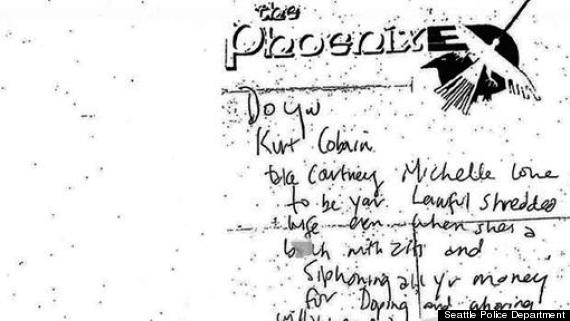 the
PhoenixE
Do you
Kurt Cobain
take Cortney Michelle Love
to be your Lawful shredded
wife even when shes a
b ch with zits and
siphoning all yr money
for Doping and whoring
Seattle Police Department